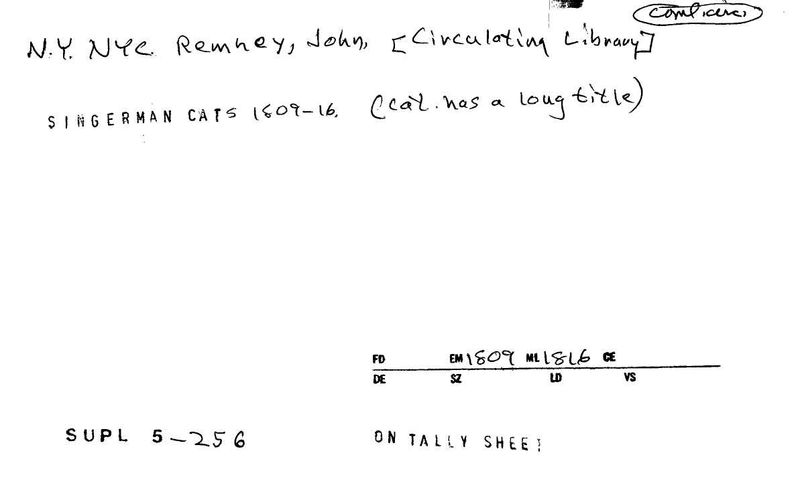 coml. circ.
N.Y. NYC. Remney, John, [Circulating Library]
SINGERMAN CATS 1809-16. (Cat. has a long title)
FD EM 1809 ML 1816 CE
DE SZ LD VS
SUPL 5-256 ON TALLY SHEET